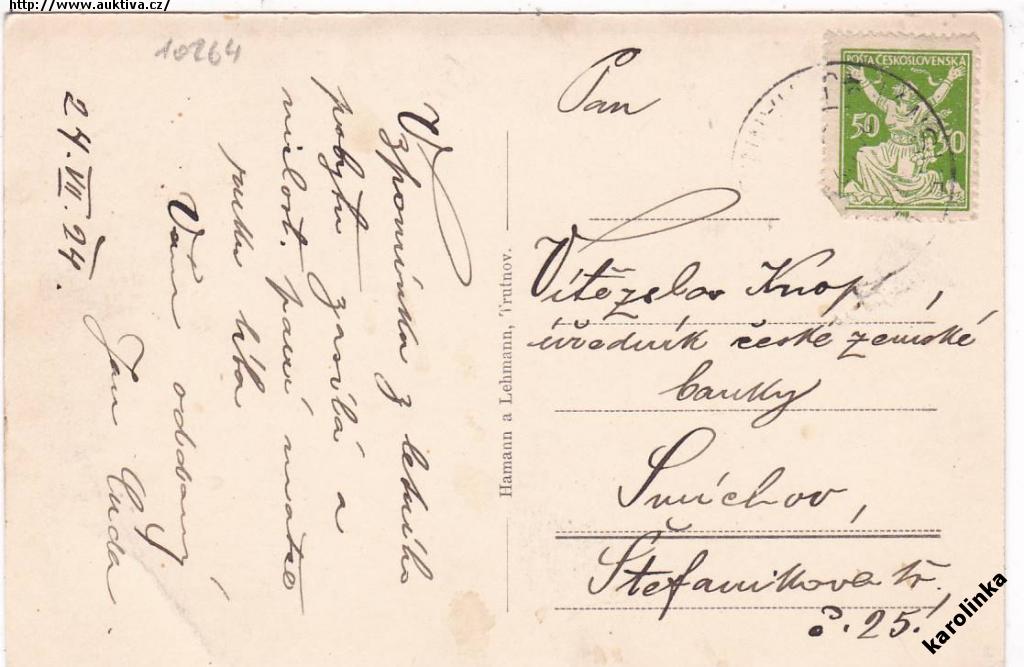 http://www.auktiva.cz/
10264
Vzpomínka z letního
pobytu zasílá a
milost. paní matce
ruku líbá
Vám oddaný
Jan Čuda.
27.VII.24.
Hamann a Lehmann, Trutnov.
Pan
POŠTA ČESKOSLOVENSKÁ
50 50
Vítězslav Knop,
úředník české zemské
banky
Smíchov,
Štefanikova tř.
č. 25!
karolinka